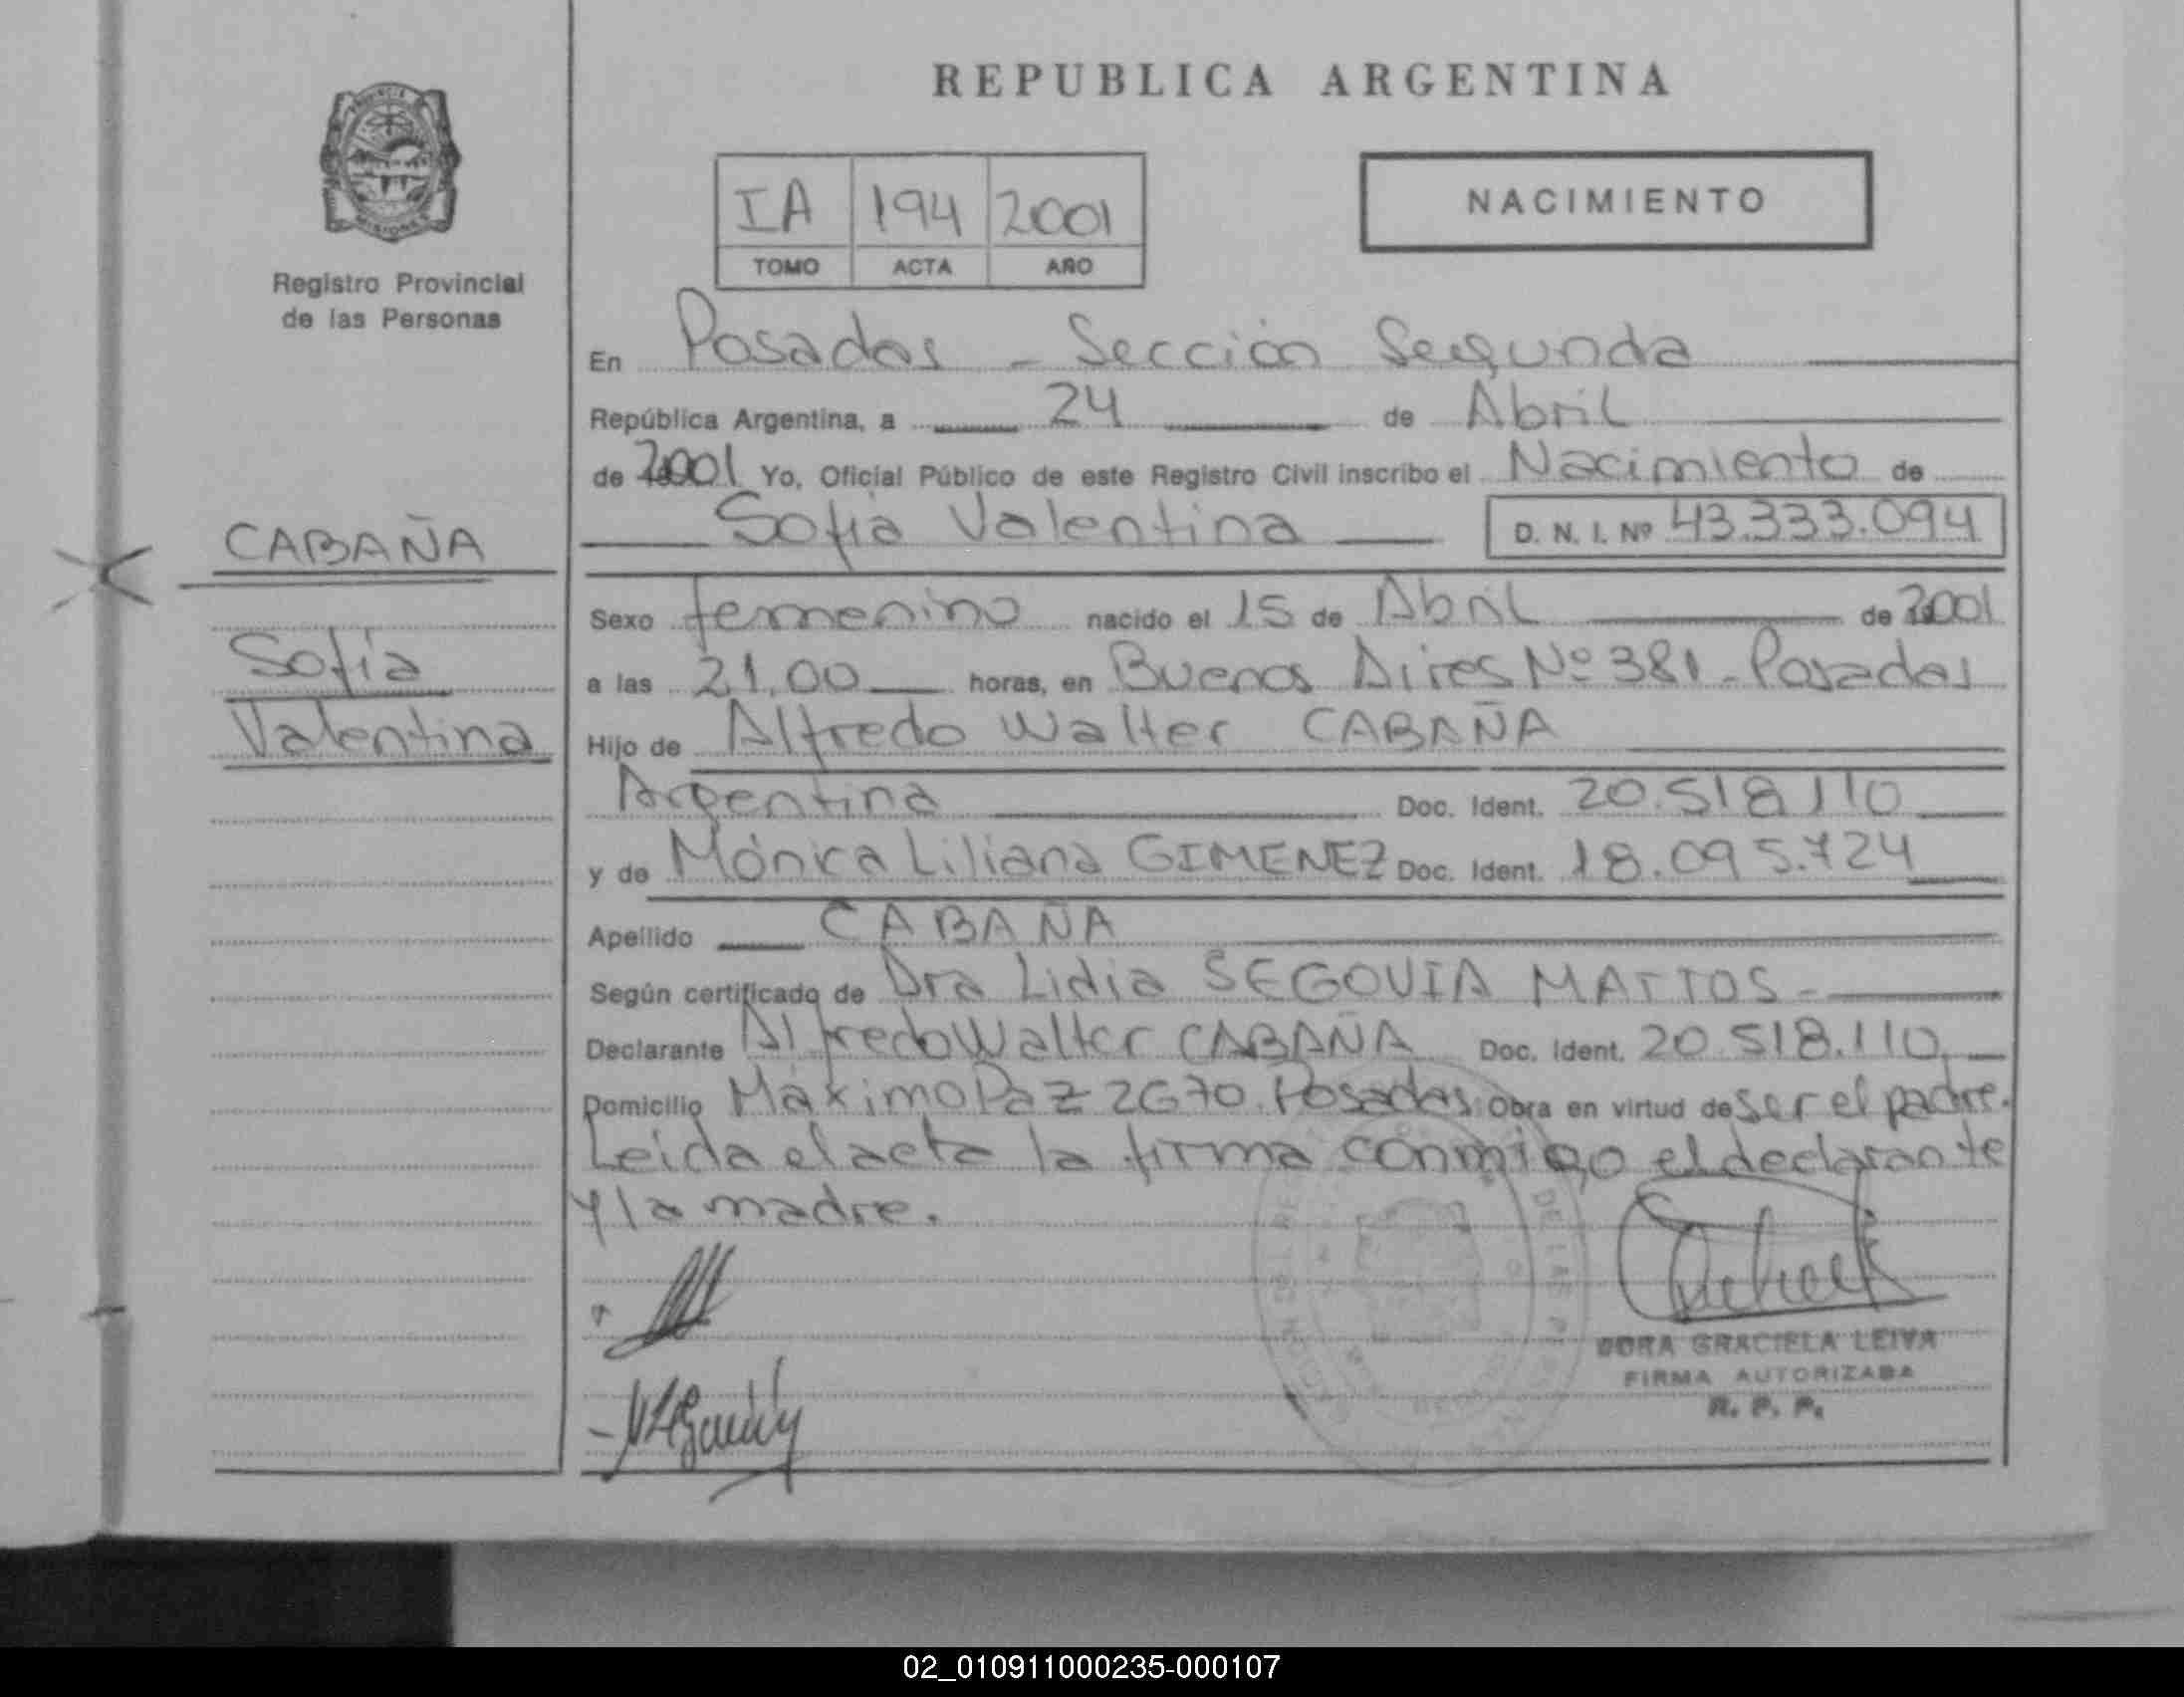 REPUBLICA ARGENTINA
PROVINCIA
MISIONES
Registro Provincial
de las Personas
IA 194 2001
TOMO ACTA AÑO
NACIMIENTO
En Posadas - Sección Segunda
República Argentina, a 24 de Abril
de 2001 Yo, Oficial Público de este Registro Civil inscribo el Nacimiento de
Sofía Valentina D. N. I. Nº 43.333.094
CABAÑA
Sofía
Valentina
Sexo femenino nacido el 15 de Abril de 2001
a las 21,00 horas, en Buenos Aires Nº 381 - Posadas
Hijo de Alfredo Walter CABAÑA
Argentina Doc. Ident. 20.518.110
y de Mónica Liliana GIMENEZ Doc. Ident. 18.095.724
Apellido CABAÑA
Según certificado de Dra Lidia SEGOVIA MATTOS-
Declarante Alfredo Walter CABAÑA Doc. Ident. 20.518.110
Domicilio Máximo Paz 2670. Posadas Obra en virtud de ser el padre.
Leida el acta la firma conmigo el declarante
y la madre.
DORA GRACIELA LEIVA
FIRMA AUTORIZADA
R. P. P.
02_010911000235-000107